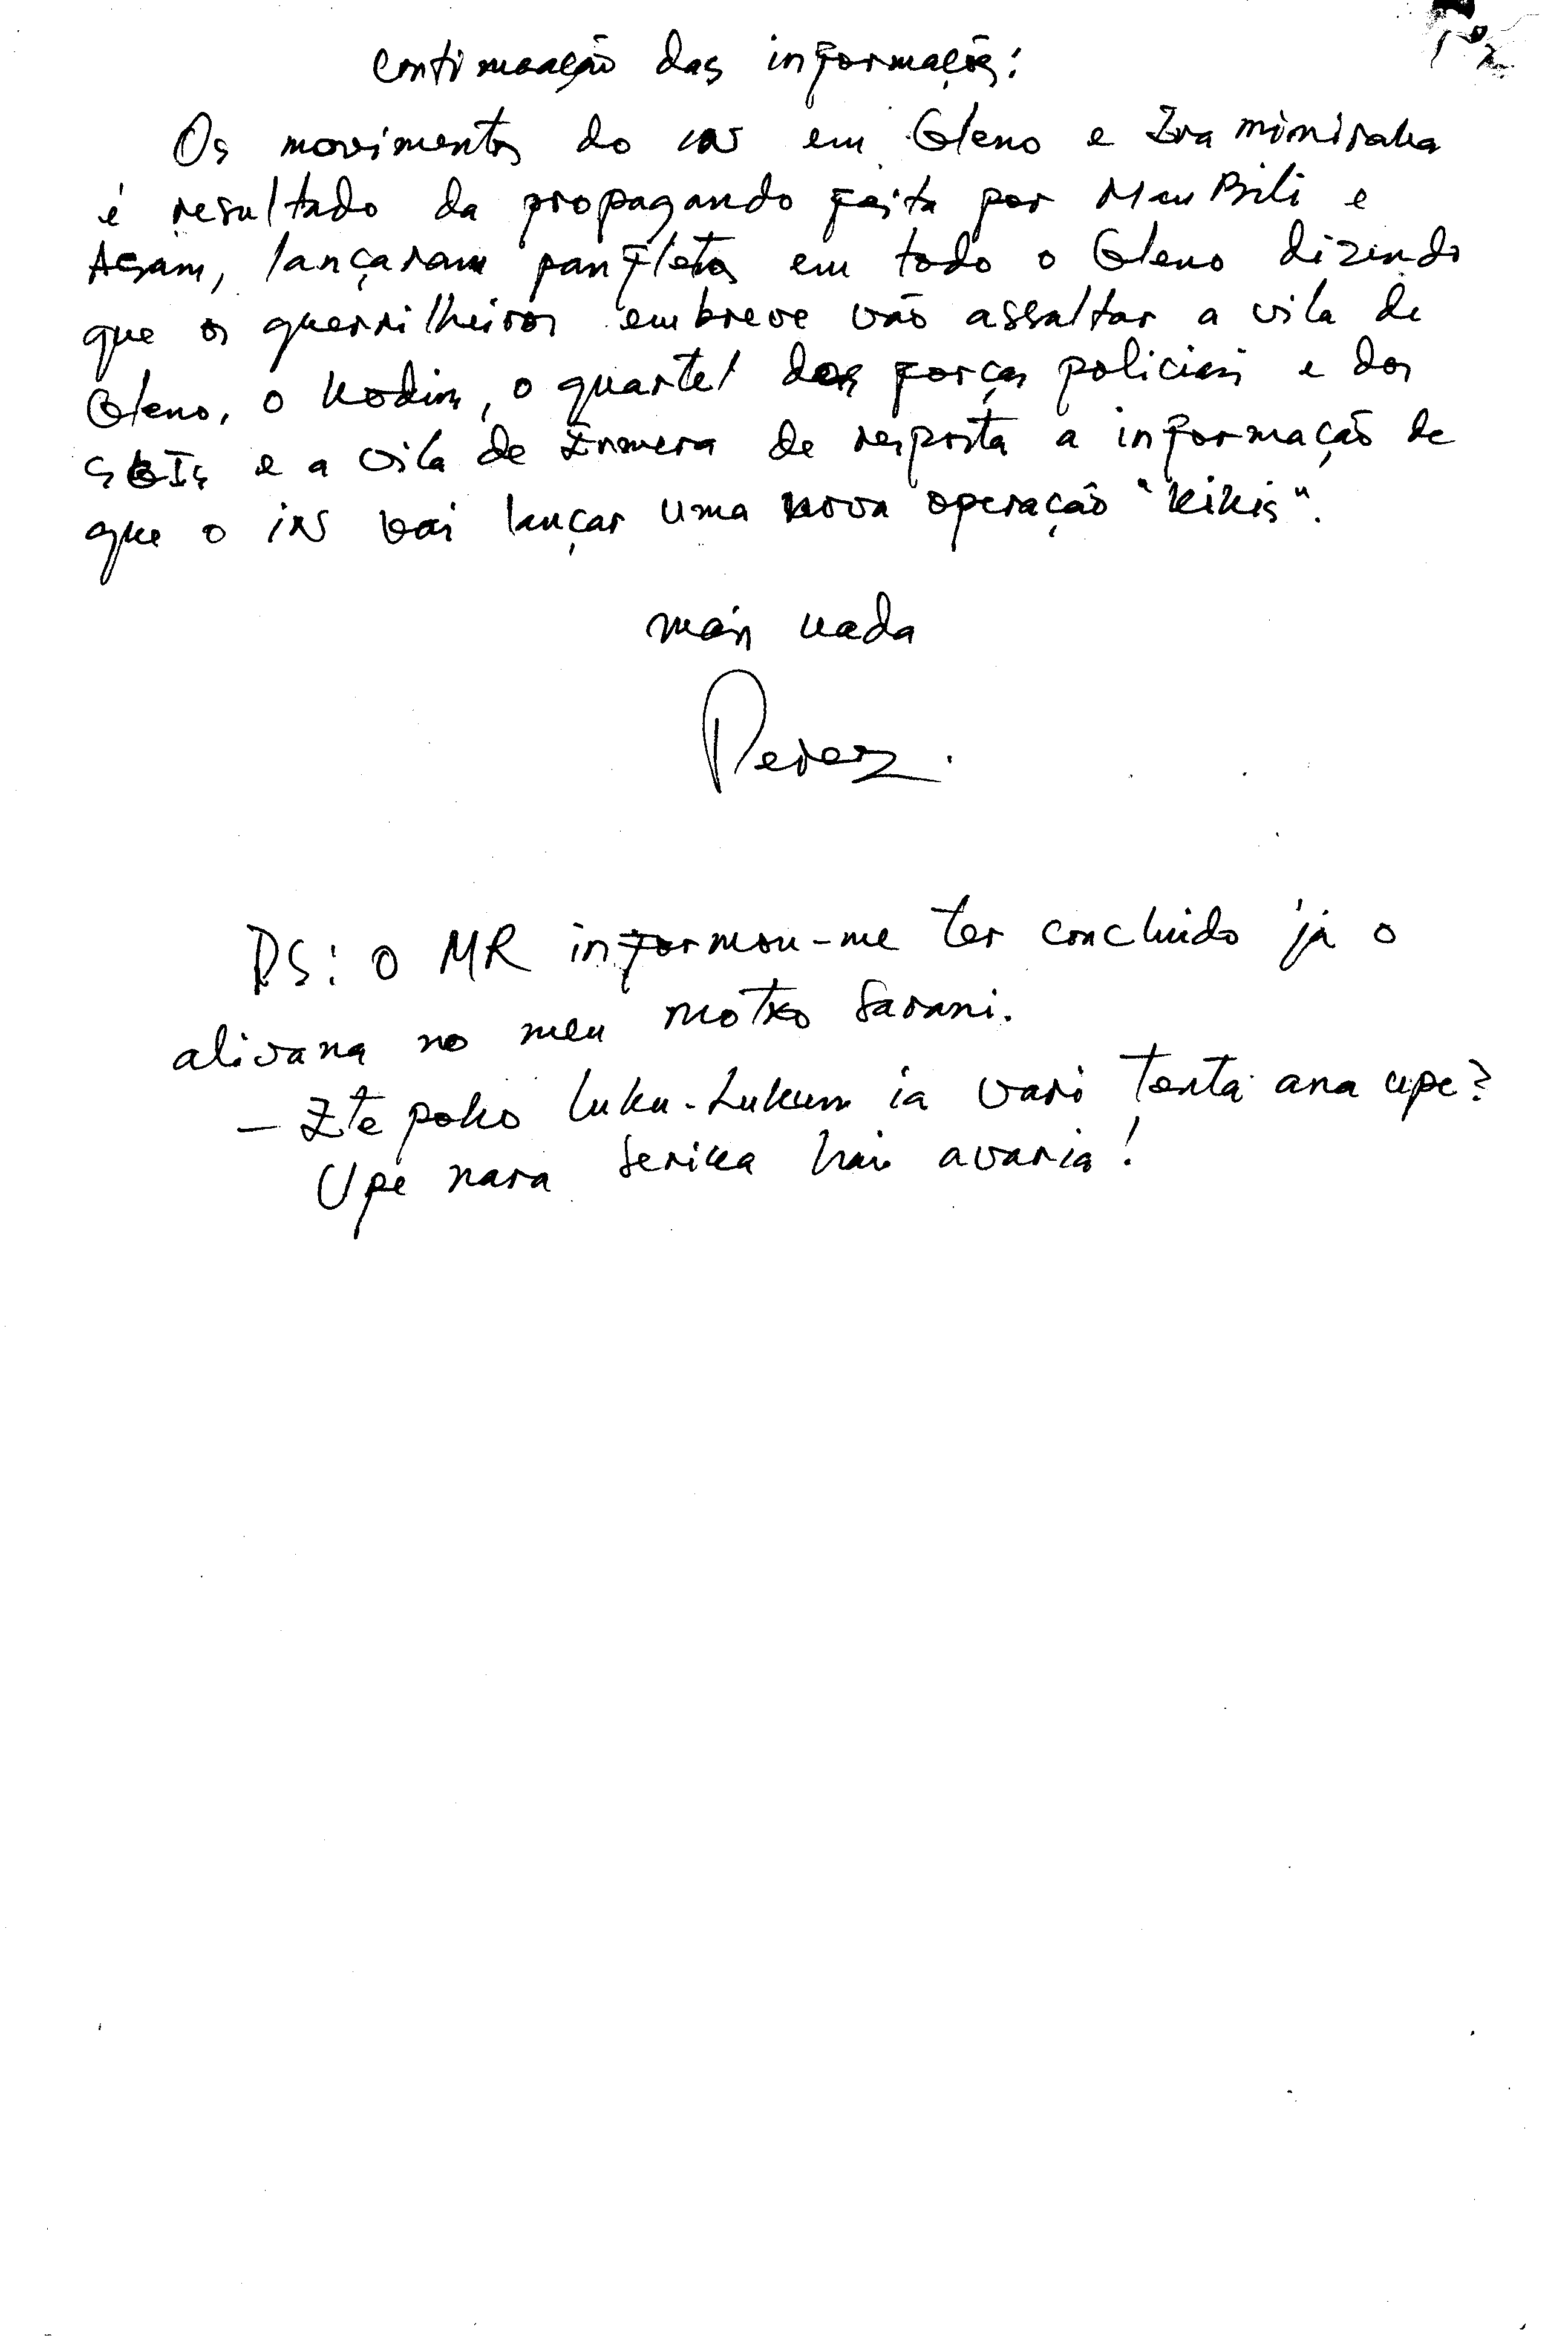 continuação das informações:
Os movimentos do in em Gleno e Era mimiraka
é resultado da propagando feita por Mau Bili e
Asam, lançaram panfletos em todo o Gleno dizendo
que os guerrilheiros embreve vão assaltar a vila de
Gleno, o Kodim, o quartel das forças policiais e dos
SGIs e a vila de Ermera de resposta a informação de
que o iN vai lançar uma nova operação "kikis".
mais nada
Perez.
PS: O MR informou-me ter concluido já o
alivana no meu motxo Sarani.
- Ete poko luku-lukun ia vari tenta ana upe?
Upe nara serika hai avaria!